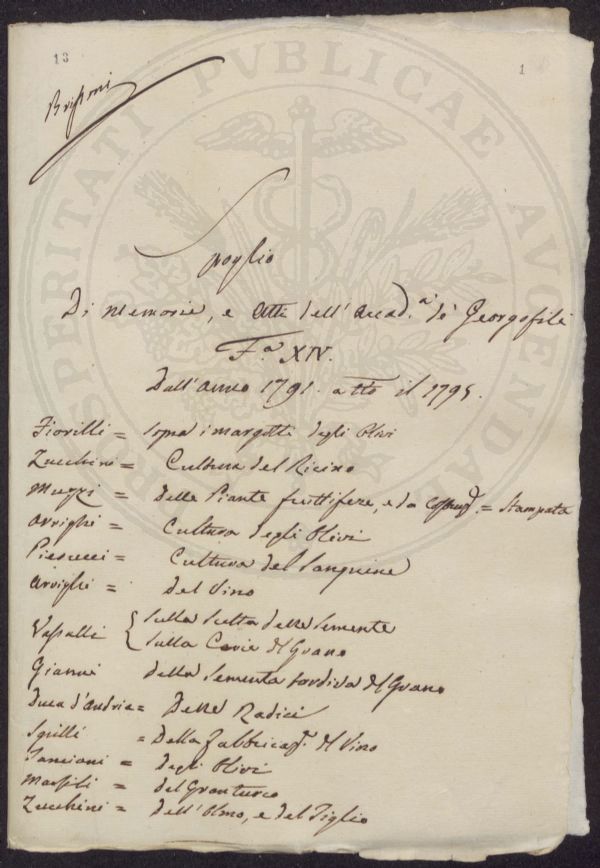 13
1
Spoglio
Di Memorie, e Atti dell'Accad.a de' Georgofili
F.a XIV.
Dall'anno 1791. a tto il 1795.
Fiorilli = sopra i margotti degli Olivi
Zucchini = Cultura del Ricino
Muzzi = delle Piante fruttifere, e da = Stampata
Arrighi = Cultura degli Olivi
Pierucci = Cultura del Sanguine
Arrighi = del Vino
Vassalli { sulla scelta delle semente
sulla Carie del Grano
Gianni della sementa tardiva del Grano
Duca d'Andria = Delle Radici
Sgrilli = Della Fabbricaz. del Vino
= degli Olivi
= del Granturco
Zucchini = dell'Olmo, e del Tiglio
PROSPERITATI PVBLICAE AVGENDAE